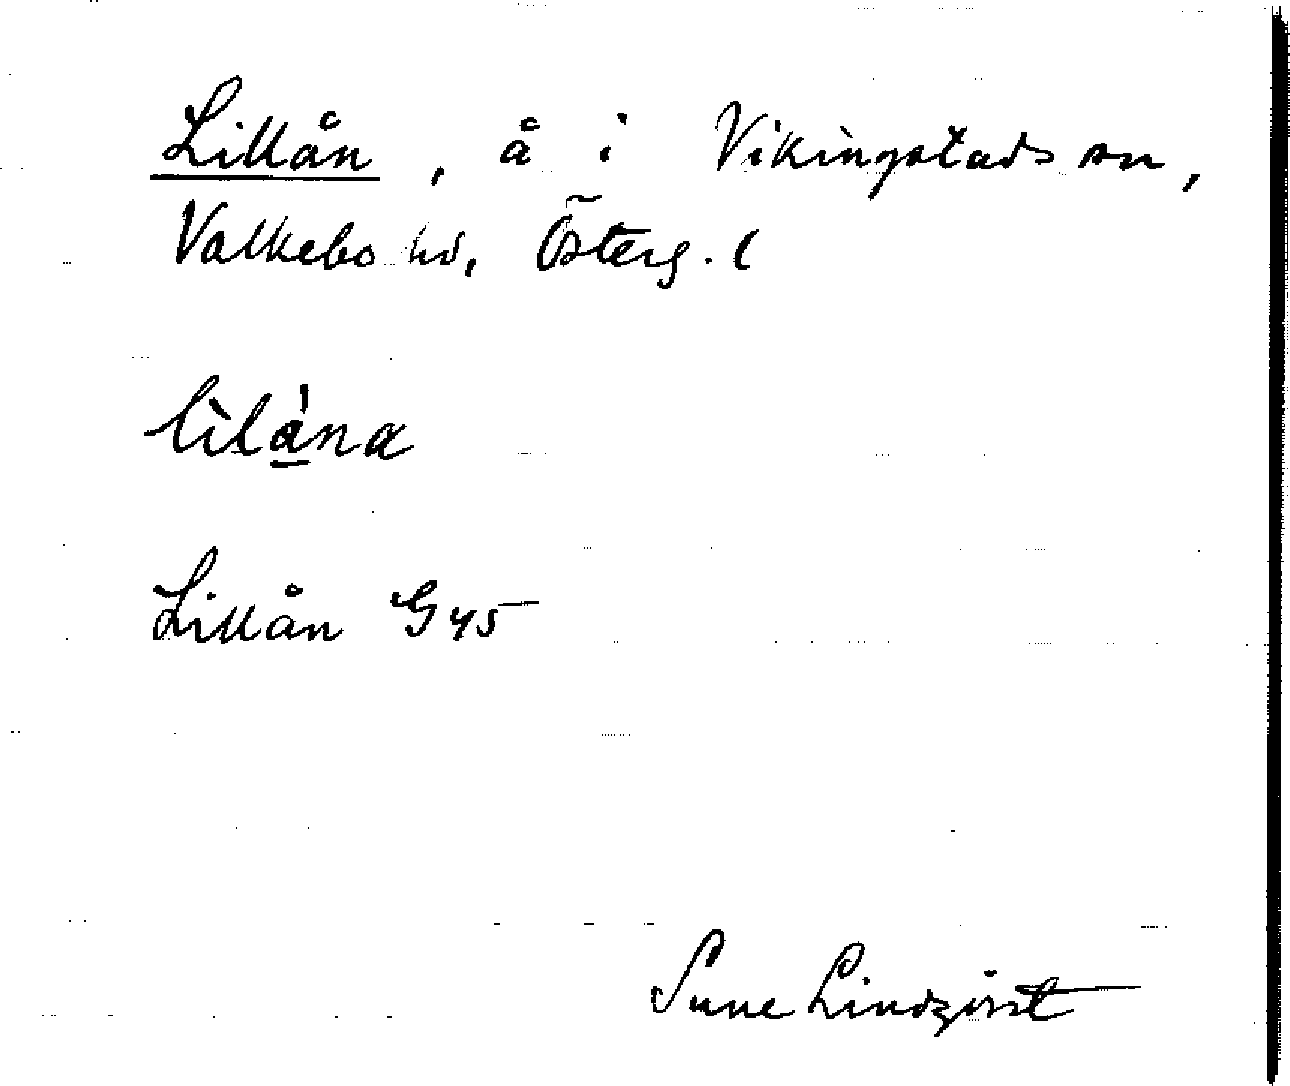 Lillån, å i Vikingstads sn,
Valkebo hd, Österg. l
lìlána
Lillån G45
Sune Lindqvist